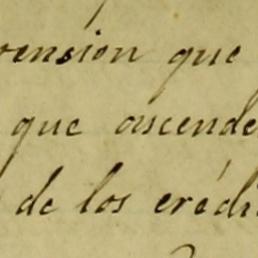 rensión que
que asciende
de los crédi